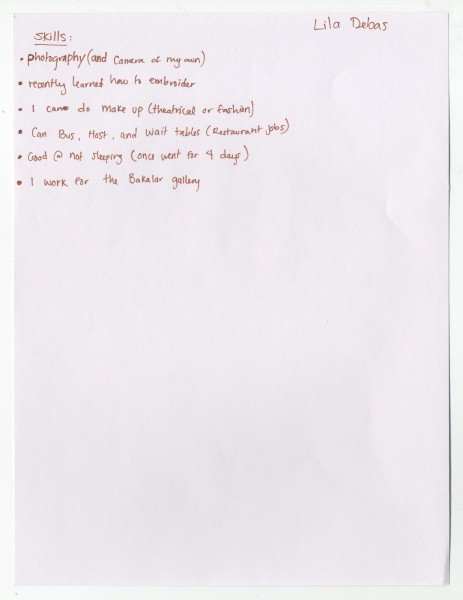 Lila Debas
Skills:
• photography (and camera of my own)
• recently learned how to embroider
• I can do make up (theatrical or fashion)
• Can Bus, Host, and Wait tables (Restaurant jobs)
• Good @ not sleeping (once went for 4 days)
• I work for the Bakalar gallery